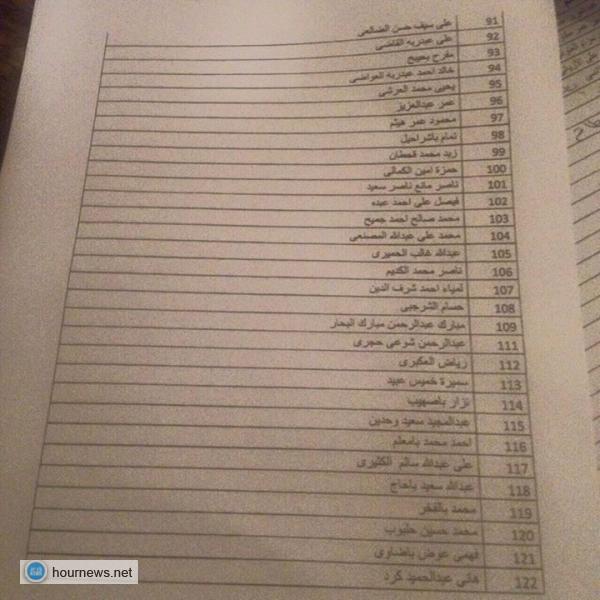 91 على سيف حسن الضالعى
92 على عبدربه القاضى
93 مفرح بحيبح
94 خالد احمد عبدربه العواضى
95 يحيى محمد العرشى
96 عمر عبدالعزيز
97 محمود عمر هيثم
98 تمام باشراحيل
99 زيد محمد قحطان
100 حمزة امين الكمالى
101 ناصر مانع ناصر سعيد
102 فيصل على احمد عبده
103 محمد صالح احمد جميح
104 محمد على عبدالله المصنعى
105 عبدالله غالب الحميرى
106 ناصر محمد الكديم
107 لمياء احمد شرف الدين
108 حسام الشرجبى
109 مبارك عبدالرحمن مبارك البحار
111 عبدالرحمن شوعى حجرى
112 رياض العكبرى
113 سميرة خميس عبيد
114 نزار باصهيب
115 عبدالمجيد سعيد وحدين
116 احمد محمد بامعلم
117 على عبدالله سالم الكثيرى
118 عبدالله سعيد باحاج
119 محمد بالفخر
120 محمد حسين حلبوب
121 فهمى عوض باضاوى
122 هانى عبدالحميد كرد
hournews.net